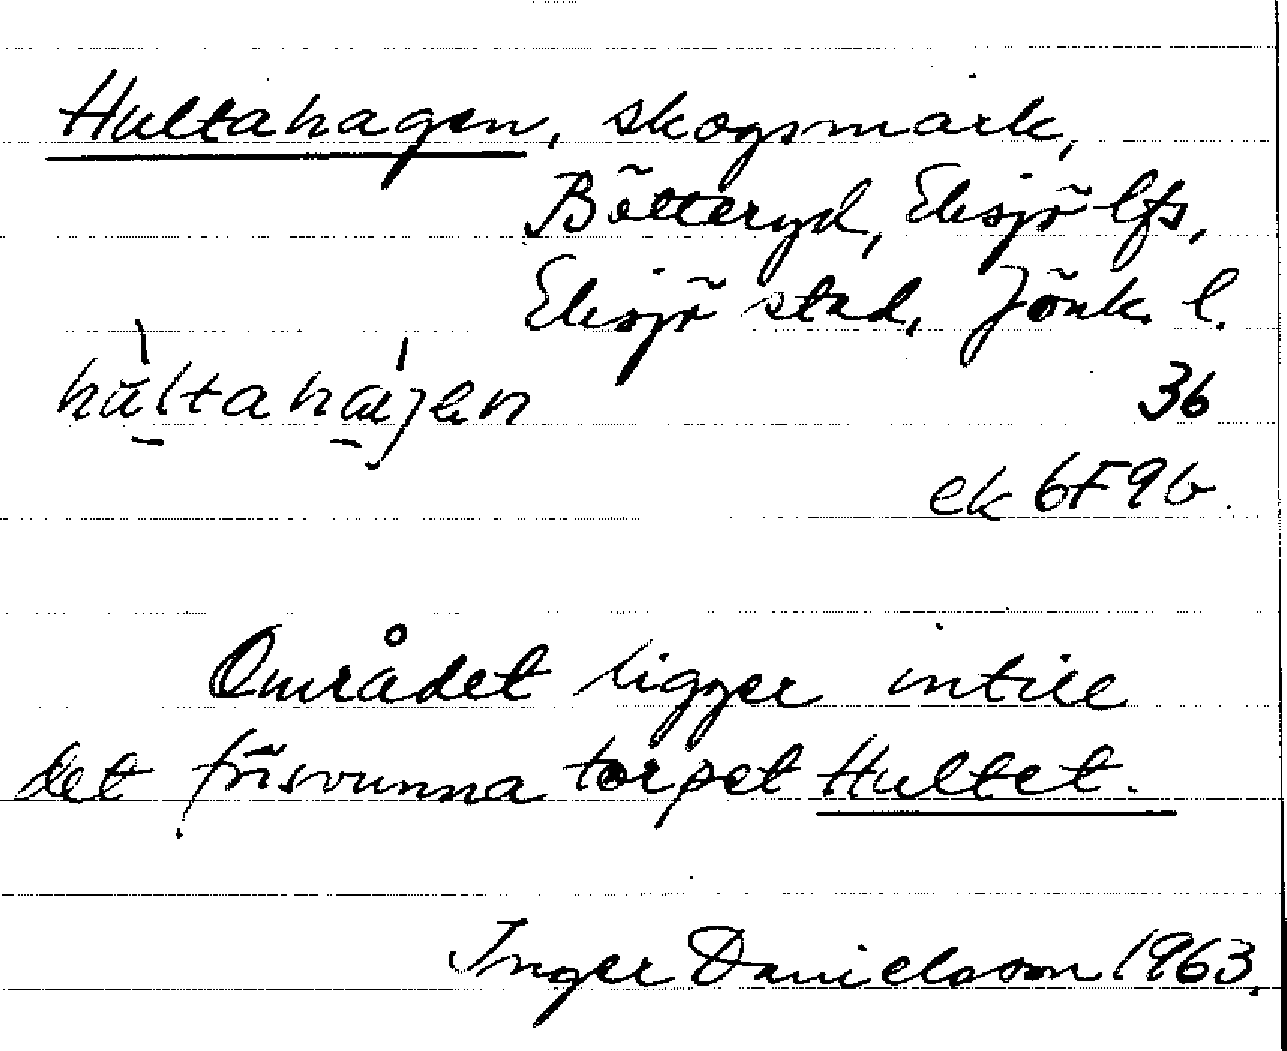 Hultahagen, skogsmark,
Bölteryd, Eksjö lfs,
Eksjö stad, Jönk. l.
hùltahágen
36
ek 6F9b
Området ligger intill
det försvunna torpet Hultet.
Inger Danielsson 1963.